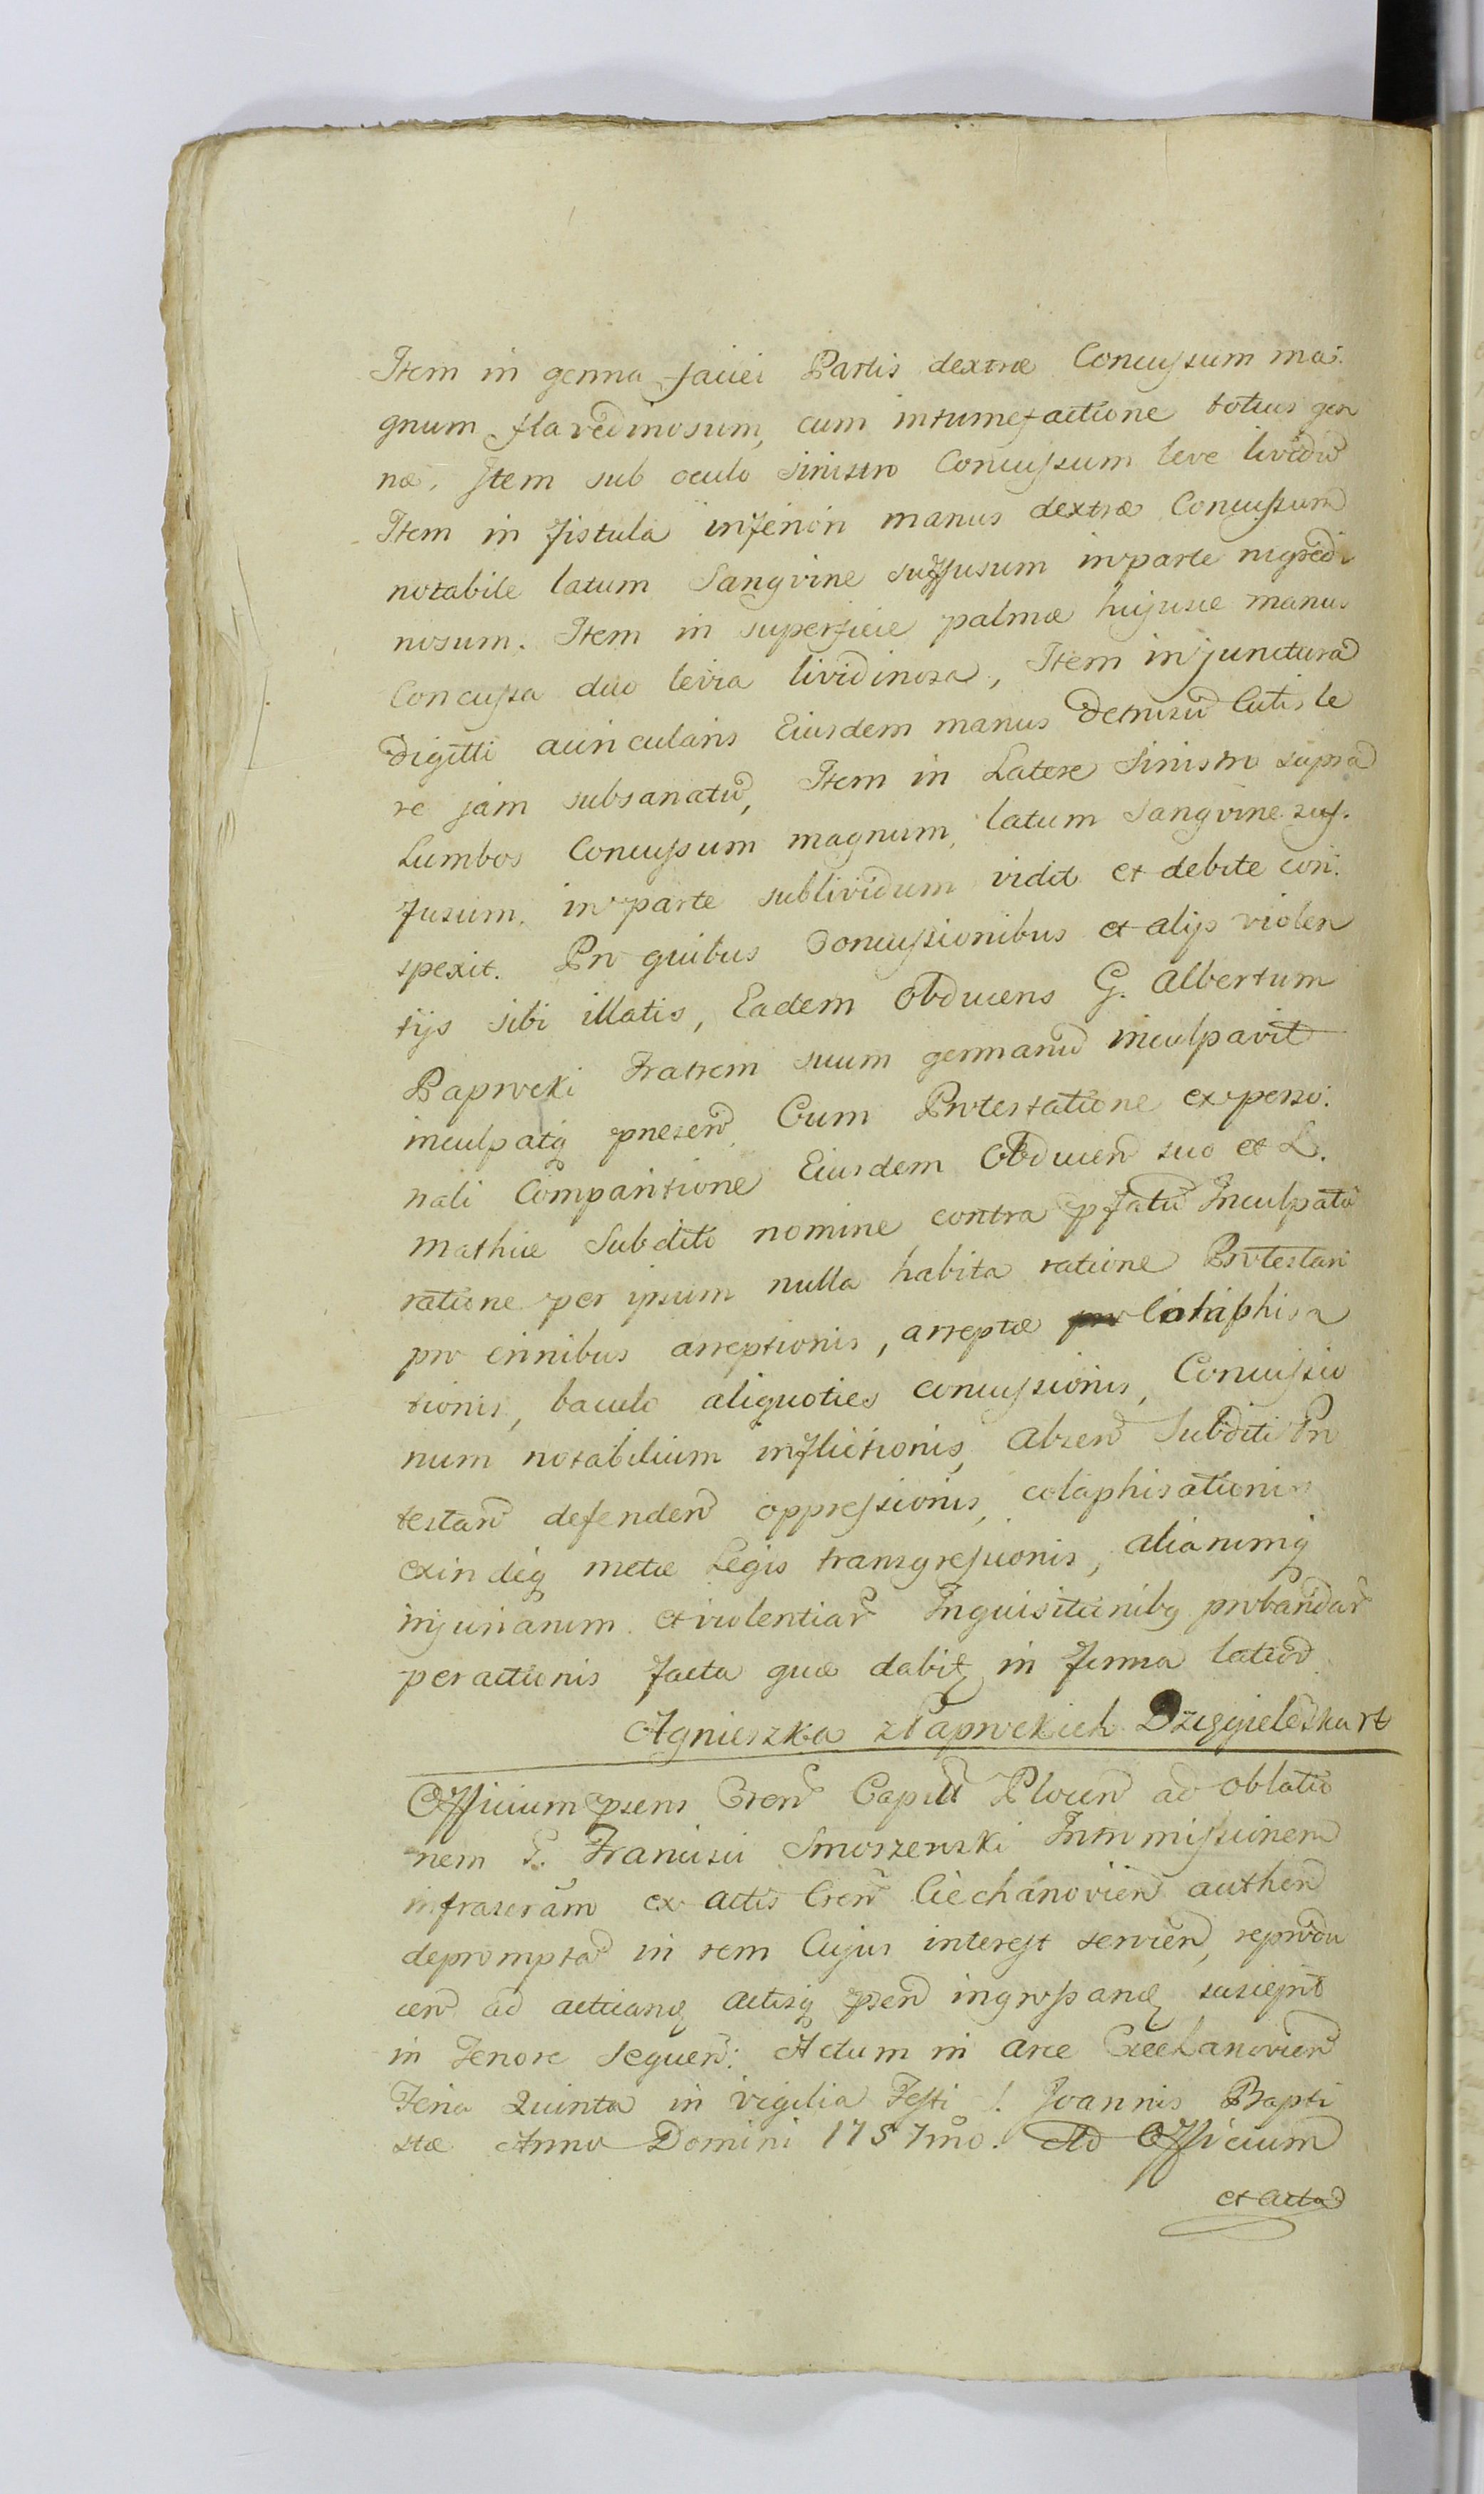 Item in genna faciei Partis dextræ Concussum ma:
gnum flavedinosum, cum intumefactione totius gen
næ. Item sub oculo sinistro Concussum leve lividũ
Item in fistula inferiori manus dextræ Concussum
notabile latum Sangvine suffusum in parte nigredi
nosum. Item in superficie palmæ hujusce manus
Concussa duo levia lividinosa, Item in junctura
digitti auricularis Eiusdem manus detrusũ Cutis le
re jam subsanatũ, Item in Latere Sinistro supra
Lumbos Concussum magnum, latum Sangvine suf.
fusum, in parte sublividum vidit et debite con:
spexit. Pro quibus Concussionibus et alijs violen
tijs sibi illatis, Eadem Obducens G. Albertum
Paprocki Fratrem suum germanũ inculpavit
inculpatq̃ præsen̄. Cum Protestatione ex perso:
nali Comparitione Eiusdem Obducen̄ suo et L.
Mathiæ Subditi nomine contra pfatũ Inculpatũ
ratione per ipsum nulla habita ratione Protestari
pro crinibus arreptionis, arreptæ Colaphisa
tionis, baculo aliquoties concussionis, Concussio
num notabilium inflictionis, absen̄ Subditi Pro
testan̄ defenden̄ oppressionis, colaphisationis
exindeq̃ metæ Legis transgressionis, aliarumq̃
injuriarum et violentiar̃ Inquisitionibq̃ probandar̃
peractionis facta quæ dabit̃ in forma latior̃
Agnieszka z Paprockich Dzięgielewska rt
Officium præsens Cren̄ Capitl Plocen̄ ad Oblatio
nem G. Francisci Smoszewski Intromissionem
infrascr̃am ex Actis Cren̄ Ciechanovien̄ authen̄
depromptã in rem Cujus interest servien̄, reprodu
cen̄ ad acticanđ Actisq̃ psen̄ ingrossanđ suscepit
in Tenore Sequen̄: Actum in Arce Ciechanovien̄
Feria Quinta in Vigilia Festi S. Joannis Bapti
stæ Anno Domini 1757mo. Ad Officium
et Acta